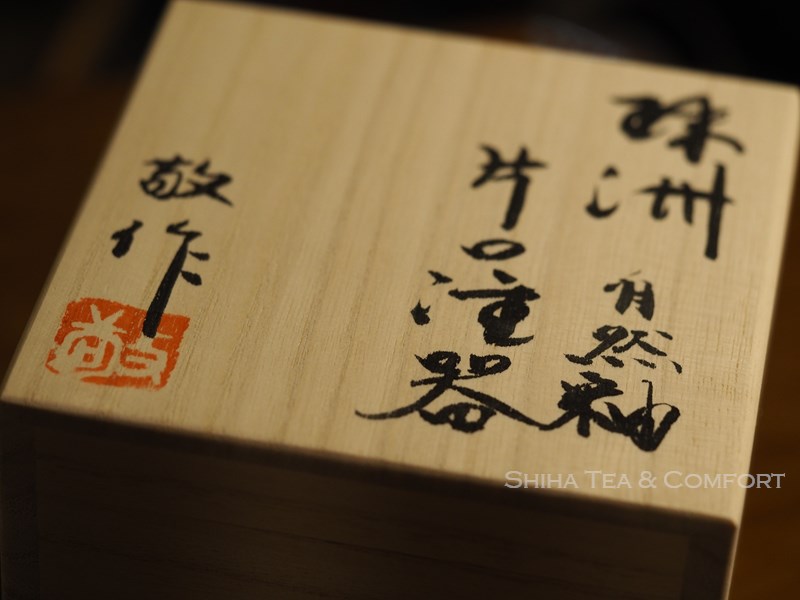 珠洲 自然釉
片口注器
敬作
敬
SHIHA TEA & COMFORT